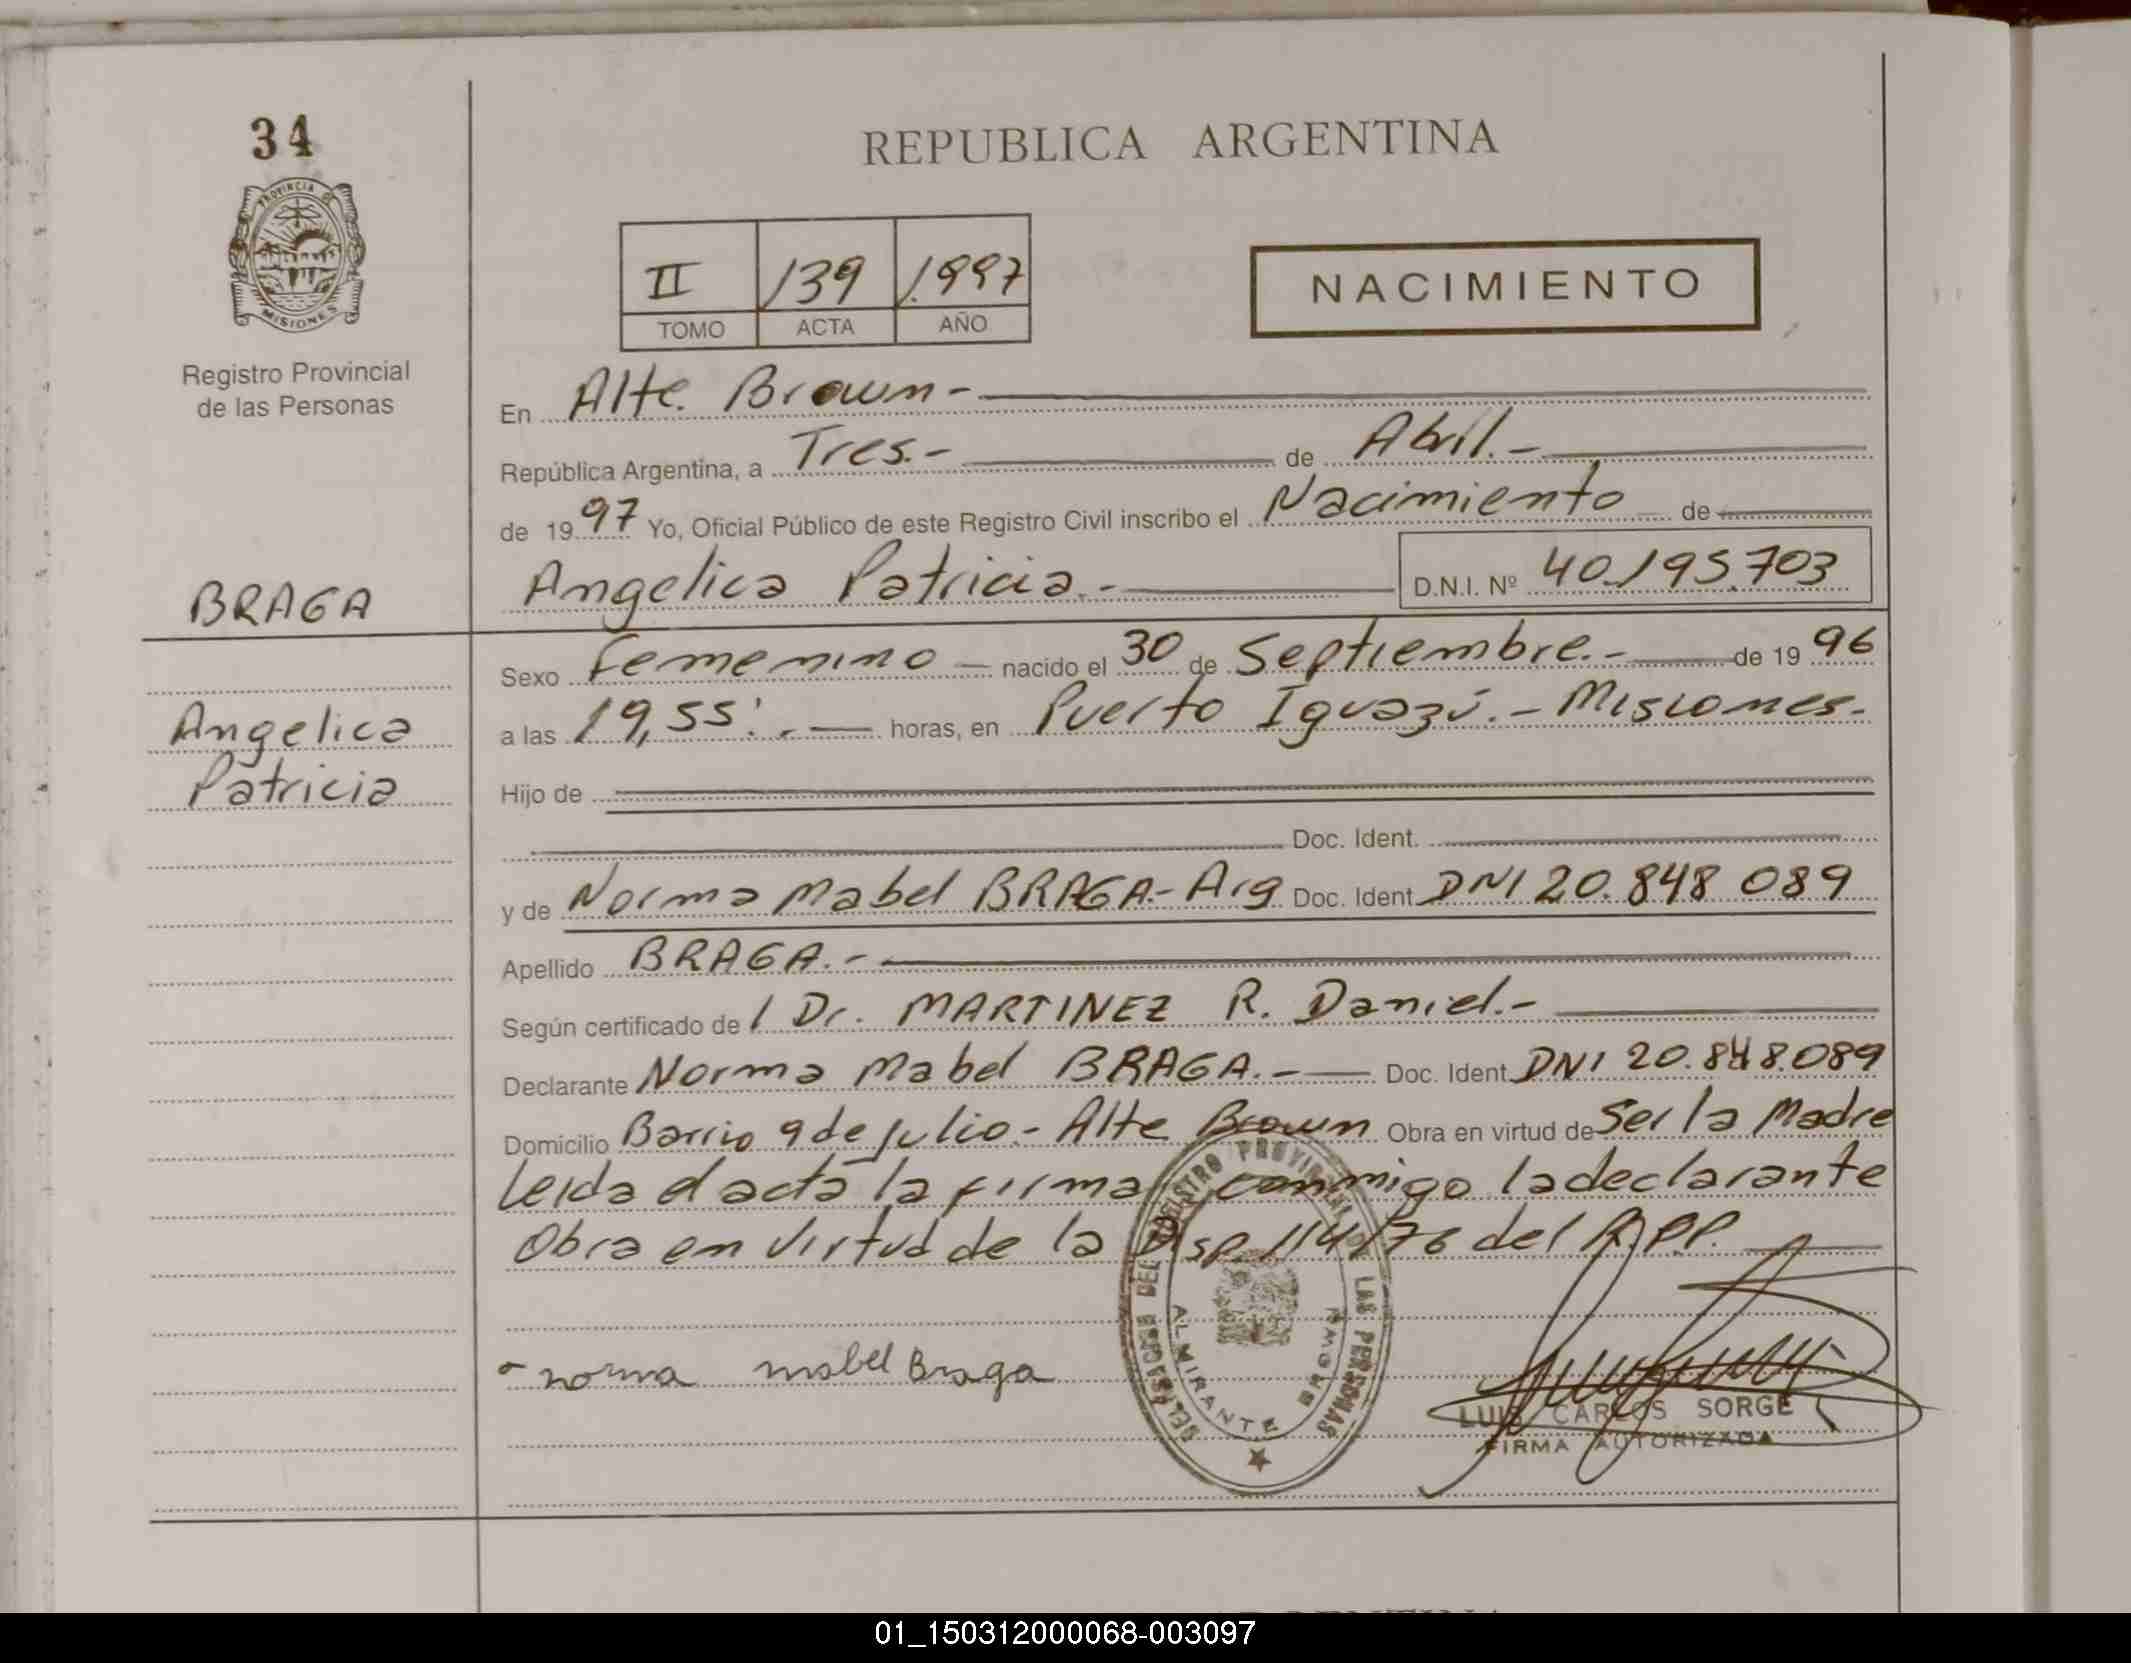 34
REPUBLICA ARGENTINA
PROVINCIA DE
MISIONES
Registro Provincial
de las Personas
II 139 1.997
TOMO ACTA AÑO
NACIMIENTO
En Alte. Brown -
República Argentina, a Tres.- de Abril.-
de 19 97 Yo, Oficial Público de este Registro Civil inscribo el Nacimiento de
BRAGA
Angelica Patricia.- D.N.I. Nº 40.195.703
Sexo Femenino nacido el 30 de Septiembre.- de 19 96
Angelica
a las 19,55'.- horas, en Puerto Iguazú.- Misiones.
Patricia
Hijo de
Doc. Ident.
y de Norma Mabel BRAGA.- Arg Doc. Ident. DNI 20.848 089
Apellido BRAGA.-
Según certificado de l Dr. MARTINEZ R. Daniel.-
Declarante Norma Mabel BRAGA.- Doc. Ident. DNI 20.848.089
Domicilio Barrio 9 de julio.- Alte Brown Obra en virtud de Ser la Madre
Leida el acta la firma conmigo la declarante
Obra en virtud de la Disp. 114/76 del R.P.P.
DELEGACION DEL REGISTRO PROVINCIAL DE LAS PERSONAS
ALMIRANTE BROWN
norma mabel Braga
LUIS CARLOS SORGE
FIRMA AUTORIZADA
01_150312000068-003097